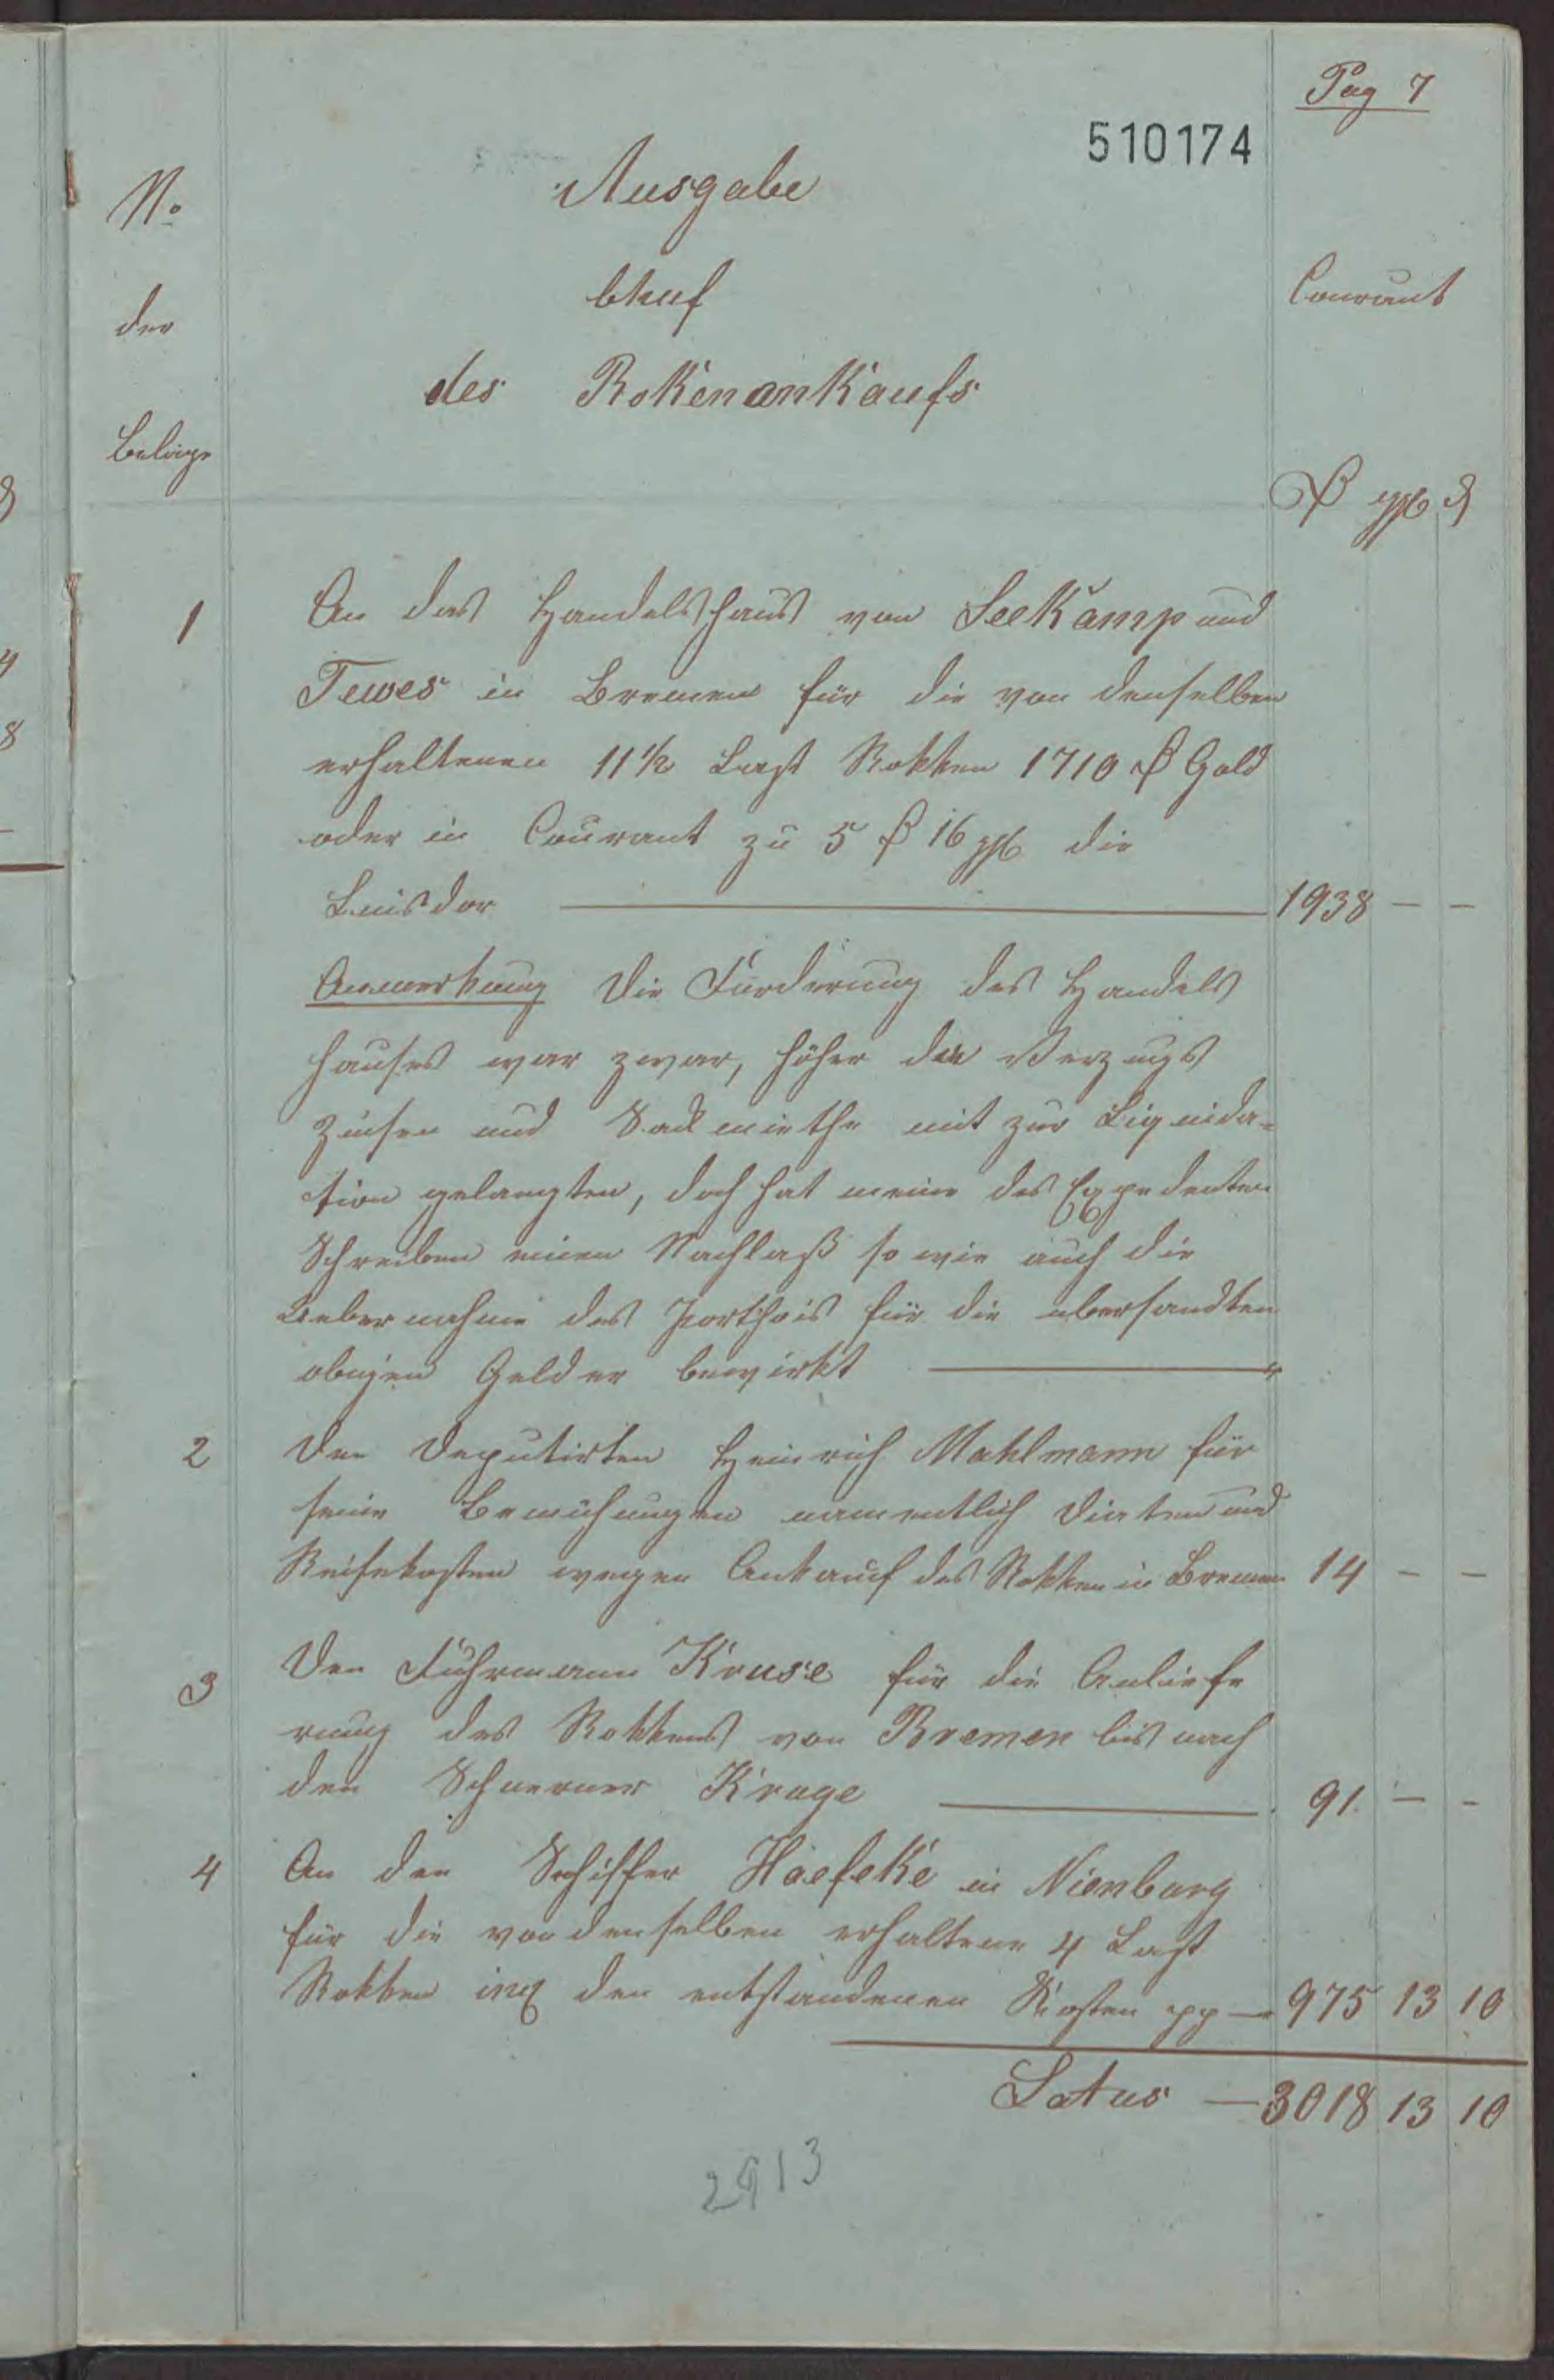 Pag 7
510174
No
der
Beläge
Ausgabe
bhuf
des Rokenankaufs
Courant
₰ ggl ₰
1 An das Handelshaus von Seekamp und
Tewes in Bremen für die von denselben
erhaltenen 11½ Last Rokken 1710 ₰ Gold
oder in Courant zu 5 ₰ 16 ggl die
Luisdor 1938 — —
Anmerkung Die Forderung des Handels
hauses war zwar, höher da Verzugs
Zinsen und Sackmiethe mit zur Liquida=
tion gelangten, doch hat meine des Expedenten
Schreiben einen Nachlaß so wie auch die
Uebernahme des Porthois für die übersandten
obigen Gelder bewirkt — "
2 Den Deputirten Heinrich Mahlmann für
seine Bemühungen namentlich Diäten und
Reisekosten wegen Ankauf des Rokken in Bremen 14 — —
3 Den Fuhrmann Kruse für die Anliefe
rung des Rokkens von Bremen bis nach
den Schuerner Kruge 91 — —
4 An den Schiffer Haefeke in Nienburg
für die von denselben erhaltene 4 Last
Rokken incl den entstandenen Kosten pp — 975 13 10
Latus — 3018 13 10
2913